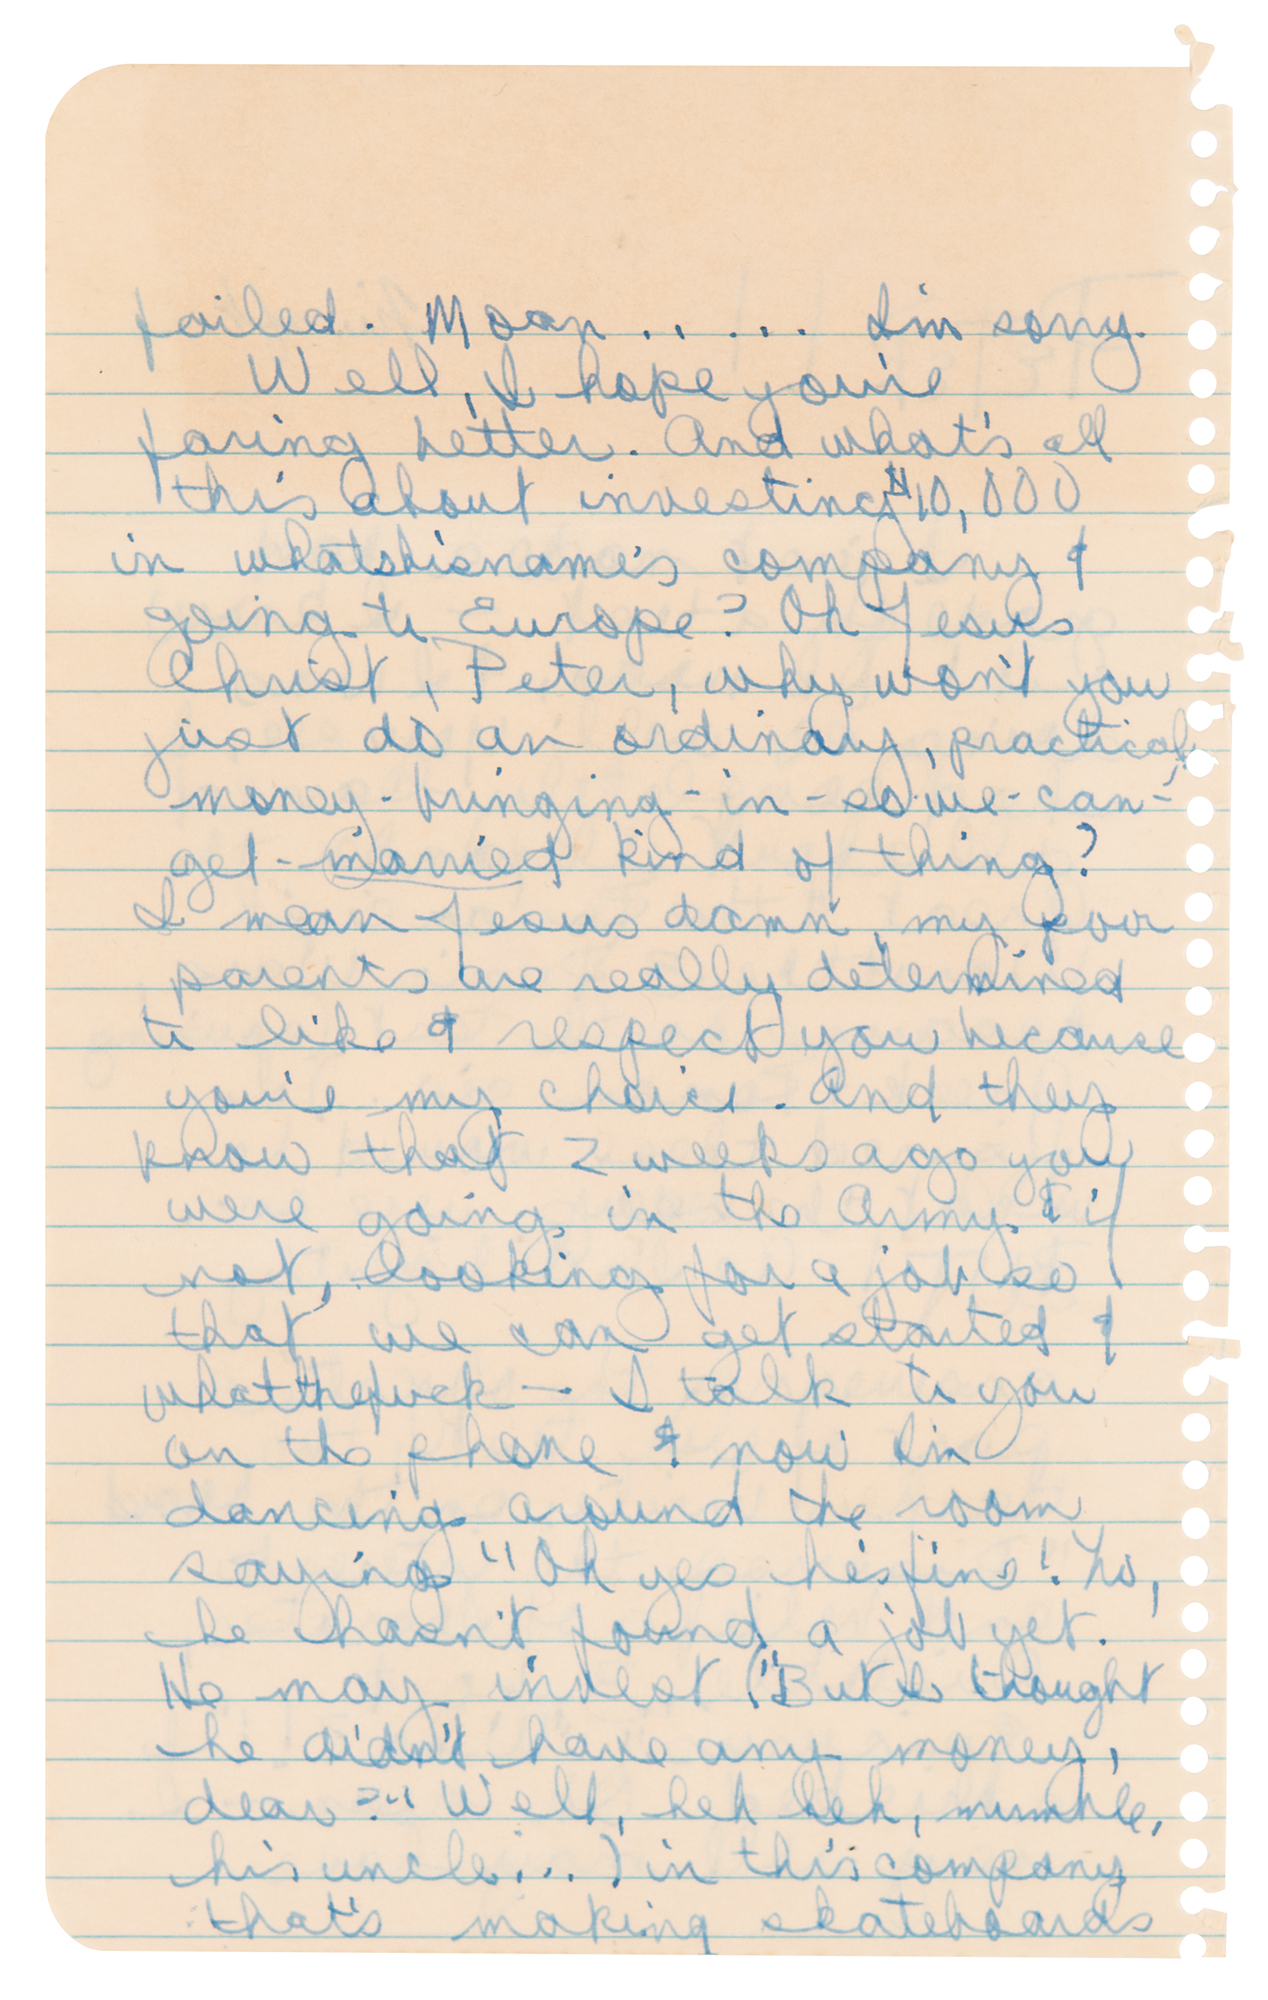 failed. Moan ..... I'm sorry.
Well, I hope you're
faring better. And what's all
this about investing $10,000
in whatshisname's company &
going to Europe? Oh Jesus
Christ, Peter, why won't you
just do an ordinary, practical,
money-bringing-in-so-we-can-
get-married kind of thing?
I mean Jesus damn, my poor
parents are really determined
to like & respect you because
you're my choice. And they
know that 2 weeks ago you
were going in the Army & if
not, looking for a job so
that we can get started &
whatthefuck — I talk to you
on the phone & now I'm
dancing around the room
saying "Oh yes he's fine! No,
he hasn't found a job yet.
He may invest ("But I thought
he didn't have any money,
dear?" Well, heh heh, mumble,
his uncle...) in this company
that's making skateboards